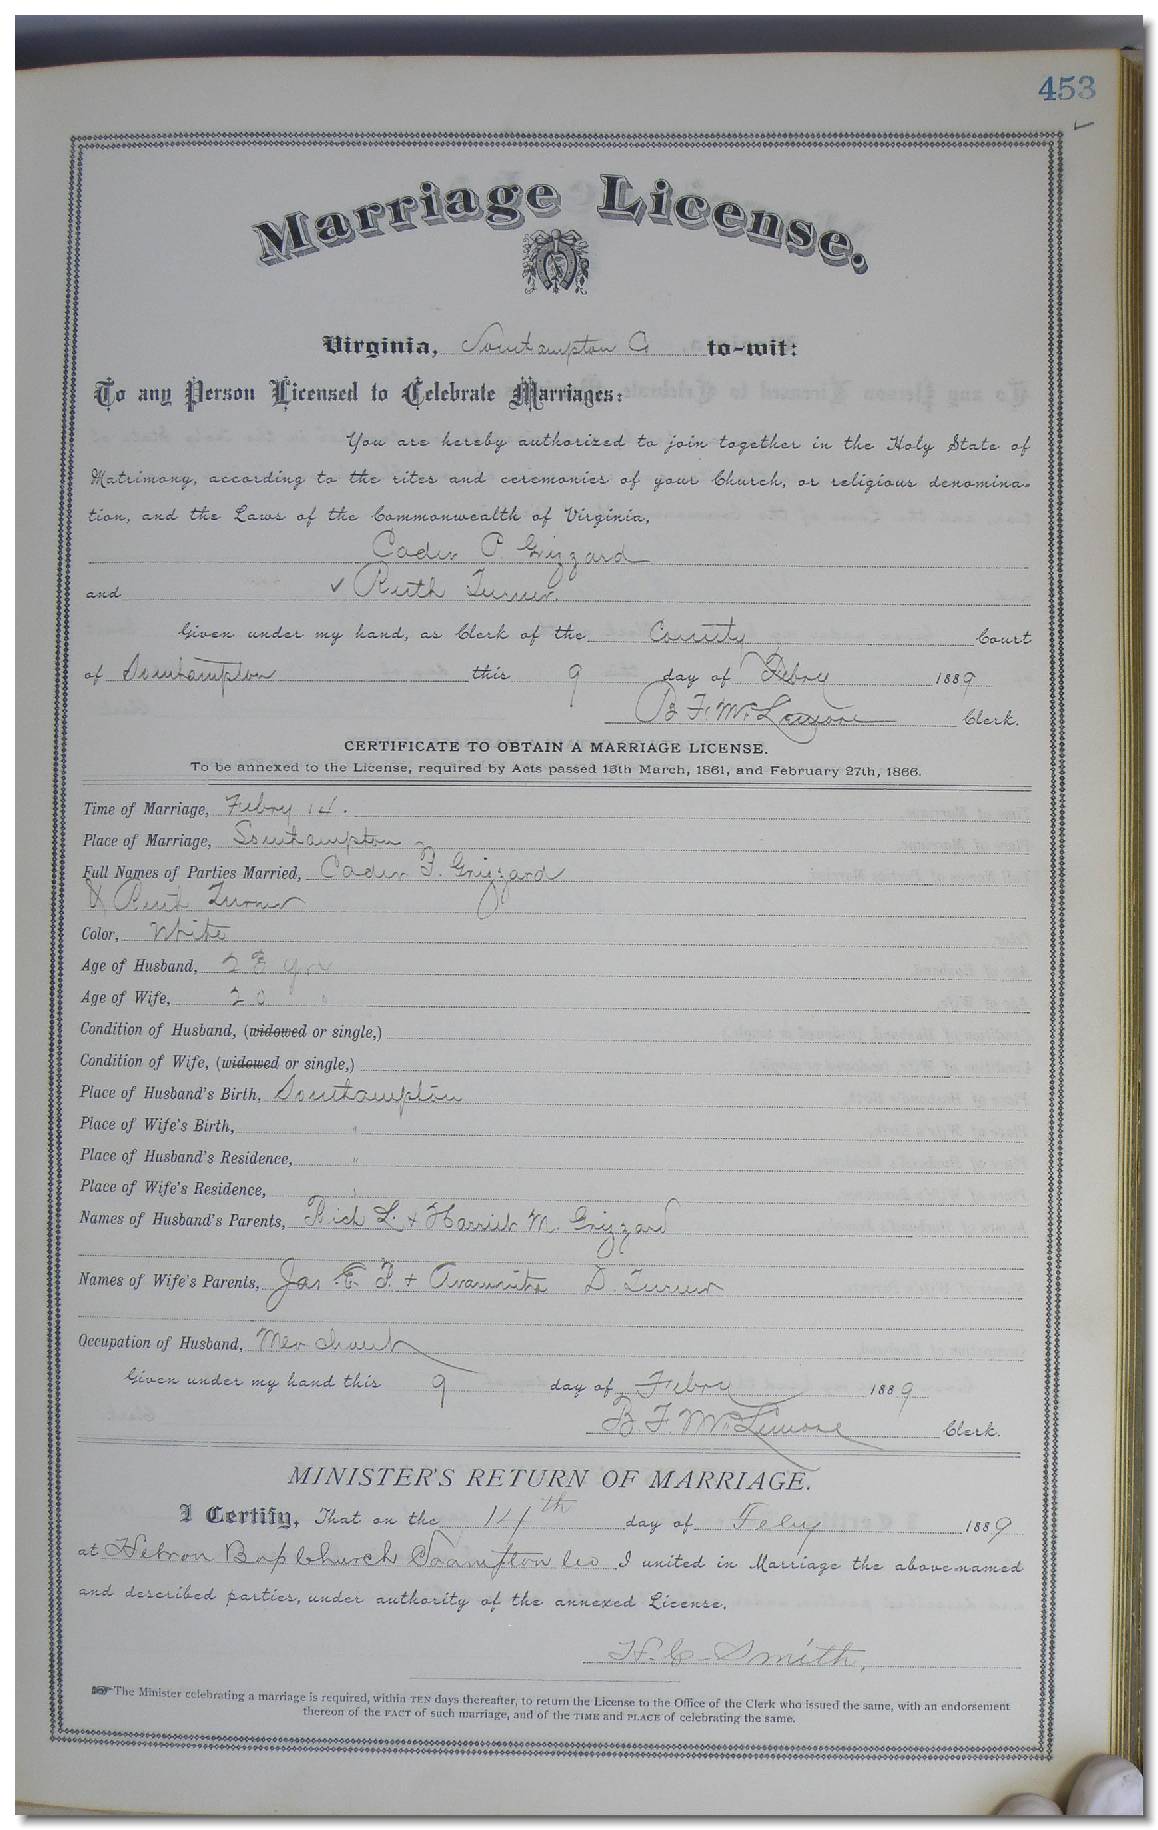 453
Marriage License.
Virginia, Southampton Co to-wit:
To any Person Licensed to Celebrate Marriages:
You are hereby authorized to join together in the Holy State of
Matrimony, according to the rites and ceremonies of your Church, or religious denomina-
tion, and the Laws of the Commonwealth of Virginia,
P. Grizzard
and ✓ Ruth Turner
Given under my hand, as Clerk of the County Court
of Southampton this 9 day of Febry 1889
B F. McLemore Clerk.
CERTIFICATE TO OBTAIN A MARRIAGE LICENSE.
To be annexed to the License, required by Acts passed 15th March, 1861, and February 27th, 1866.
Time of Marriage, Febry 14.
Place of Marriage, Southampton
Full Names of Parties Married, Grizzard
& Ruth Turner
Color, White
Age of Husband, 28 yrs
Age of Wife, 20 "
Condition of Husband, (widowed or single,)
Condition of Wife, (widowed or single,)
Place of Husband's Birth, Southampton
Place of Wife's Birth, "
Place of Husband's Residence, "
Place of Wife's Residence, "
Names of Husband's Parents, Rich L. + Harriet M. Grizzard
Names of Wife's Parents, Jas. E. F. + D. Turner
Occupation of Husband, Merchant
Given under my hand this 9 day of Febry 1889
B. F. McLemore Clerk.
MINISTER'S RETURN OF MARRIAGE.
I Certify, That on the 14th day of Feby 1889
at Hebron Bap Church Co I united in Marriage the above-named
and described parties, under authority of the annexed License.
H. C. Smith,
The Minister celebrating a marriage is required, within TEN days thereafter, to return the License to the Office of the Clerk who issued the same, with an endorsement
thereon of the FACT of such marriage, and of the TIME and PLACE of celebrating the same.